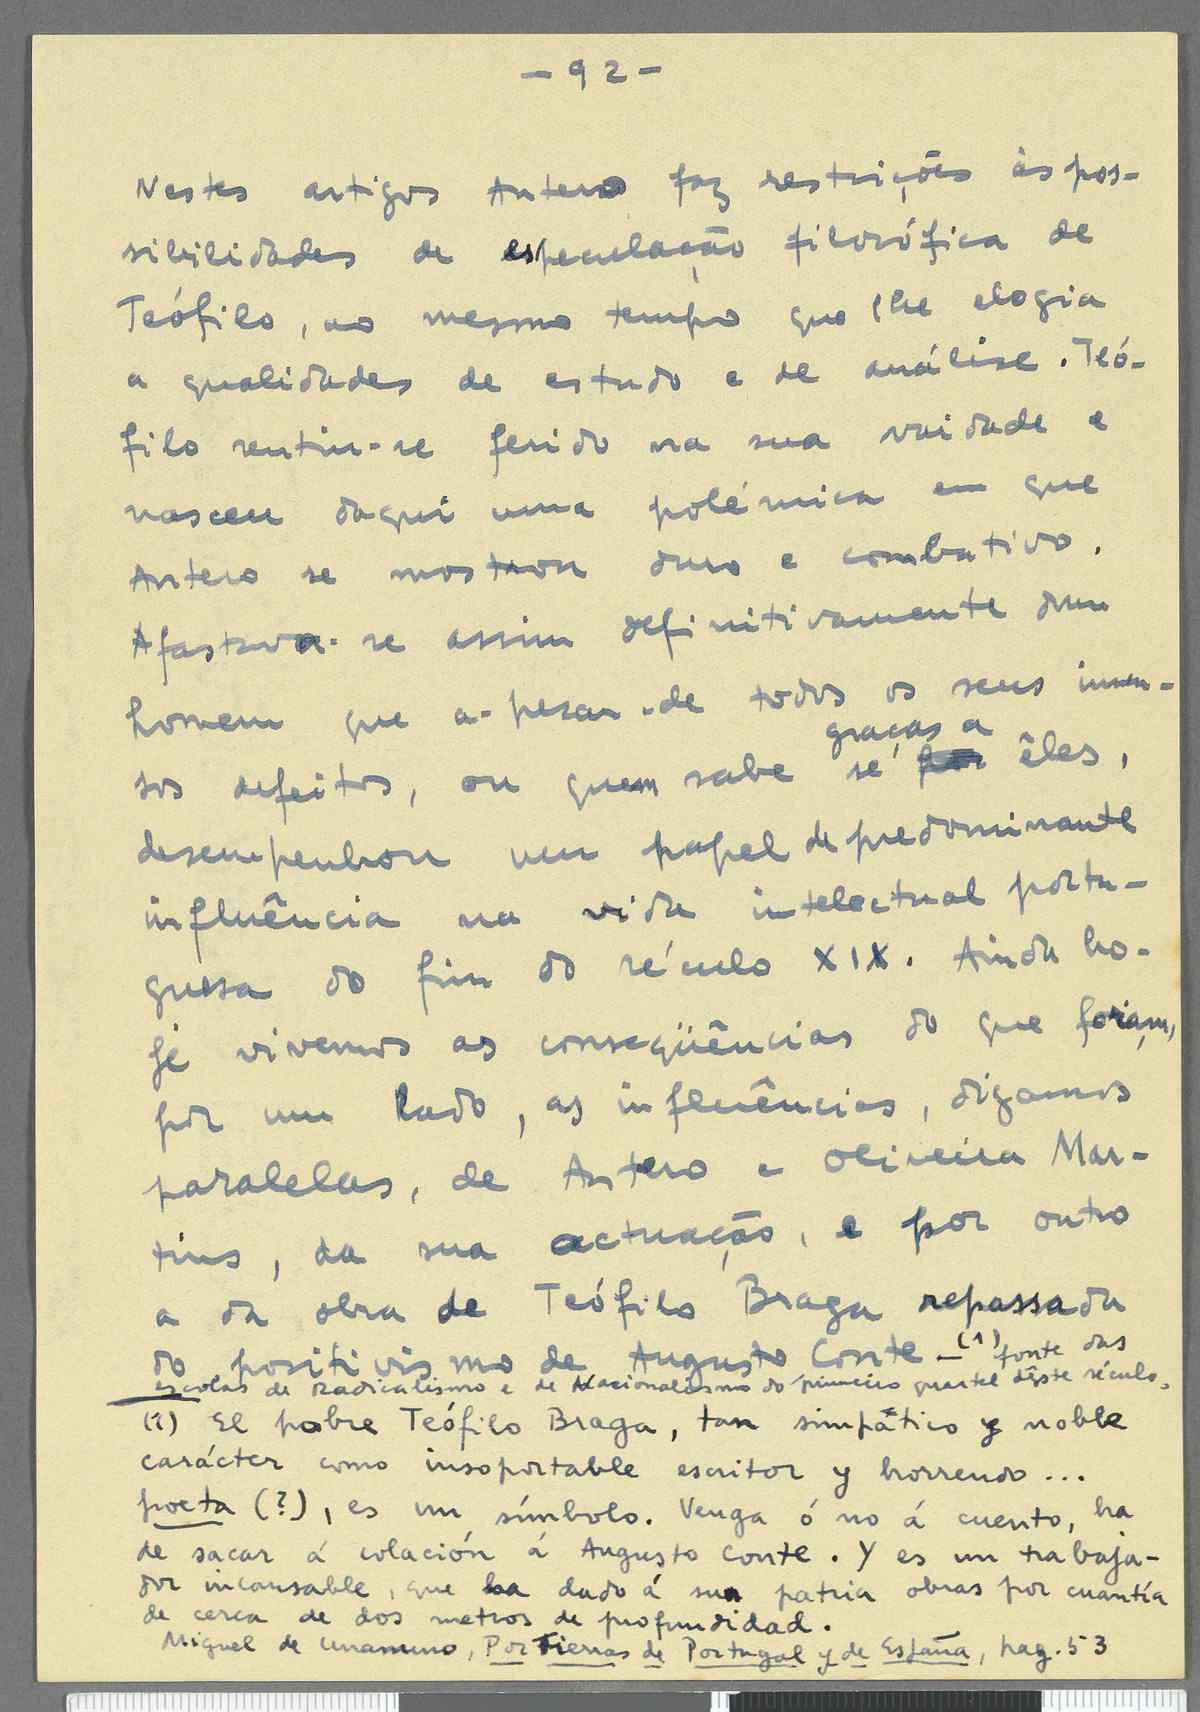 — 92 —
Nestes artigos Antero faz restrições às pos-
sibilidades de especulação filosófica de
Teófilo, ao mesmo tempo que lhe elogia
a qualidades de estudo e de análise. Teó-
filo sentiu-se ferido na sua vaidade e
nasceu daqui uma polémica em que
Antero se mostrou duro e combativo.
Afastava-se assim definitivamente dum
homem que a-pesar-de todos os seus imen-
sos defeitos, ou quem sabe se graças a êles,
desempenhou um papel de predominante
influência na vida intelectual portu-
guesa do fim do século XIX. Ainda ho-
je vivemos as conseqüências do que foram,
por um lado, as influências, digamos
paralelas, de Antero e Oliveira Mar-
tins, da sua actuação, e por outro
a da obra de Teófilo Braga repassada
do positivismo de Augusto Conte —(1) fonte das
escolas de Radicalismo e de Nacionalismo do primeiro quartel dêste século.
(1) El pobre Teófilo Braga, tan simpático y noble
carácter como insoportable escritor y horrendo ...
poeta (?), es un símbolo. Venga ó no á cuento, ha
de sacar á colación á Augusto Conte. Y es un trabaja-
dor incansable, que ha dado á sua patria obras por cuantía
de cerca de dos metros de profundidad.
Miguel de Unamuno, Por Tierras de Portugal y de España, pag. 53